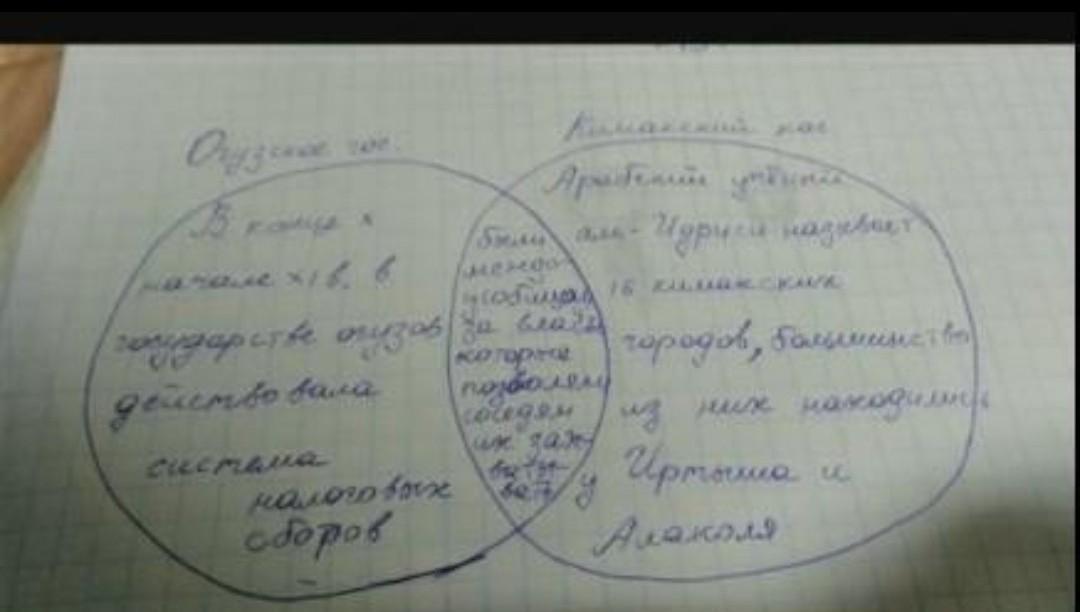 Огузское гос.
В конце х
начале х1 в. в
государстве огузов
действовала
система
налоговых
сборов
были
междо-
усобицы
за власть
которые
позволяли
соседям
их зах-
ваты-
вать
Кимакский каг
Арабский учёный
аль-Идриси называет
16 кимакских
городов, большинство
из них находились
у Иртыша и
Алаколя